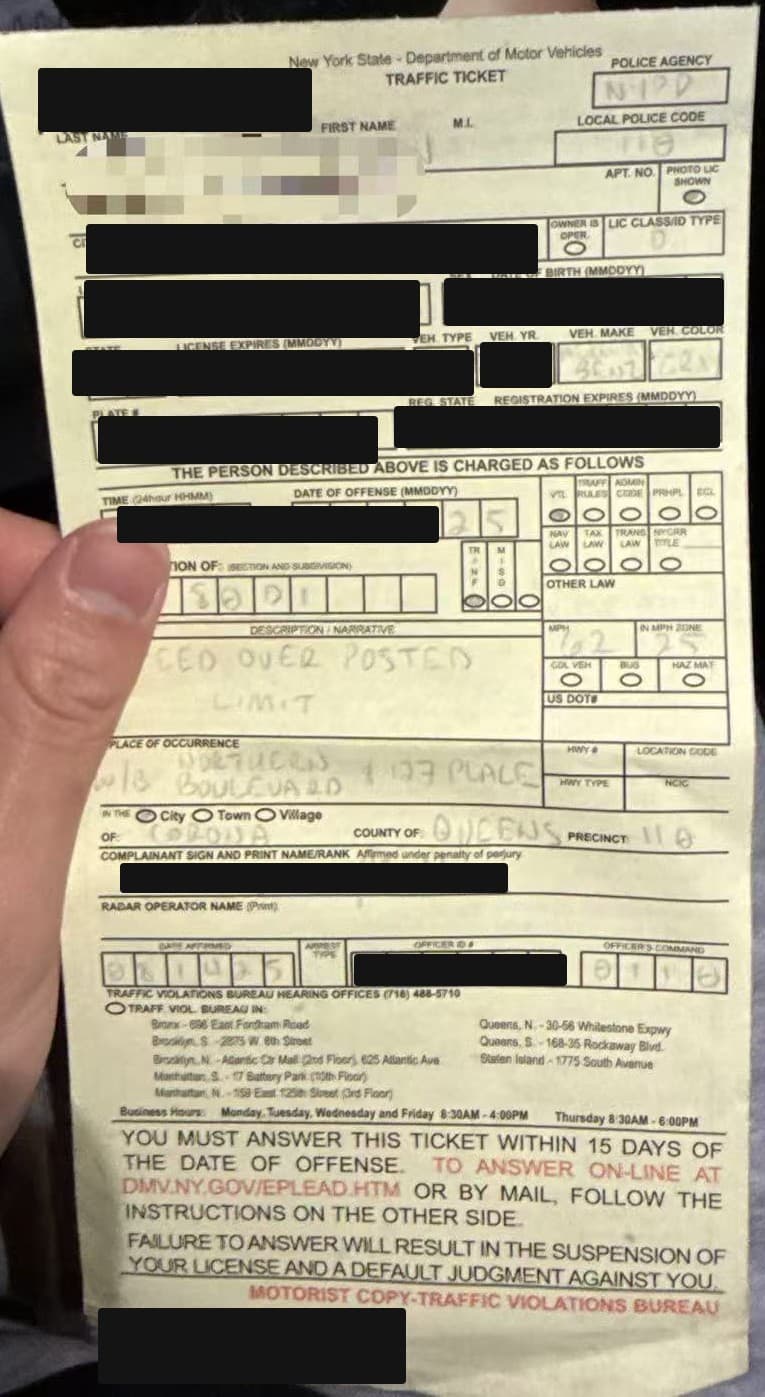 New York State - Department of Motor Vehicles
TRAFFIC TICKET
POLICE AGENCY
NYPD
LAST NAME
FIRST NAME
M.I.
LOCAL POLICE CODE
110
APT. NO.
PHOTO LIC SHOWN
OWNER IS OPER.
LIC CLASS/ID TYPE
D
OF BIRTH (MMDDYY)
LICENSE EXPIRES (MMDDYY)
VEH. TYPE
VEH. YR.
VEH. MAKE
VEH. COLOR
PLATE #
REG. STATE
REGISTRATION EXPIRES (MMDDYY)
THE PERSON DESCRIBED ABOVE IS CHARGED AS FOLLOWS
TIME (24hour HHMM)
DATE OF OFFENSE (MMDDYY)
25
VTL
TRAFF RULES
ADMIN CODE
PRHPL
ECL
NAV LAW
TAX LAW
TRANS LAW
NYCRR TITLE
TION OF: (SECTION AND SUBDIVISION)
TR INF
MISD
OTHER LAW
DESCRIPTION / NARRATIVE
MPH
62
IN MPH ZONE
25
CED OVER POSTED
LIMIT
CDL VEH
BUS
HAZ MAT
US DOT#
PLACE OF OCCURRENCE
HWY #
LOCATION CODE
W/B NORTHERN BOULEVARD & 127 PLACE
HWY TYPE
NCIC
IN THE City Town Village
OF: CORONA COUNTY OF: QUEENS PRECINCT: 110
COMPLAINANT SIGN AND PRINT NAME/RANK Affirmed under penalty of perjury
RADAR OPERATOR NAME (Print)
DATE AFFIRMED
ARREST TYPE
OFFICER ID #
OFFICER'S COMMAND
081425
0110
TRAFFIC VIOLATIONS BUREAU HEARING OFFICES (718) 488-5710
TRAFF. VIOL. BUREAU IN:
Bronx - 696 East Fordham Road
Brooklyn, S. - 2875 W. 8th Street
Brooklyn, N. - Atlantic Ctr Mall (2nd Floor), 625 Atlantic Ave
Manhattan, S. - 17 Battery Park (10th Floor)
Manhattan, N. - 159 East 125th Street (3rd Floor)
Queens, N. - 30-56 Whitestone Expwy
Queens, S. - 168-35 Rockaway Blvd.
Staten Island - 1775 South Avenue
Business Hours: Monday, Tuesday, Wednesday and Friday 8:30AM - 4:00PM Thursday 8:30AM - 6:00PM
YOU MUST ANSWER THIS TICKET WITHIN 15 DAYS OF
THE DATE OF OFFENSE. TO ANSWER ON-LINE AT
DMV.NY.GOV/EPLEAD.HTM OR BY MAIL, FOLLOW THE
INSTRUCTIONS ON THE OTHER SIDE.
FAILURE TO ANSWER WILL RESULT IN THE SUSPENSION OF
YOUR LICENSE AND A DEFAULT JUDGMENT AGAINST YOU.
MOTORIST COPY-TRAFFIC VIOLATIONS BUREAU